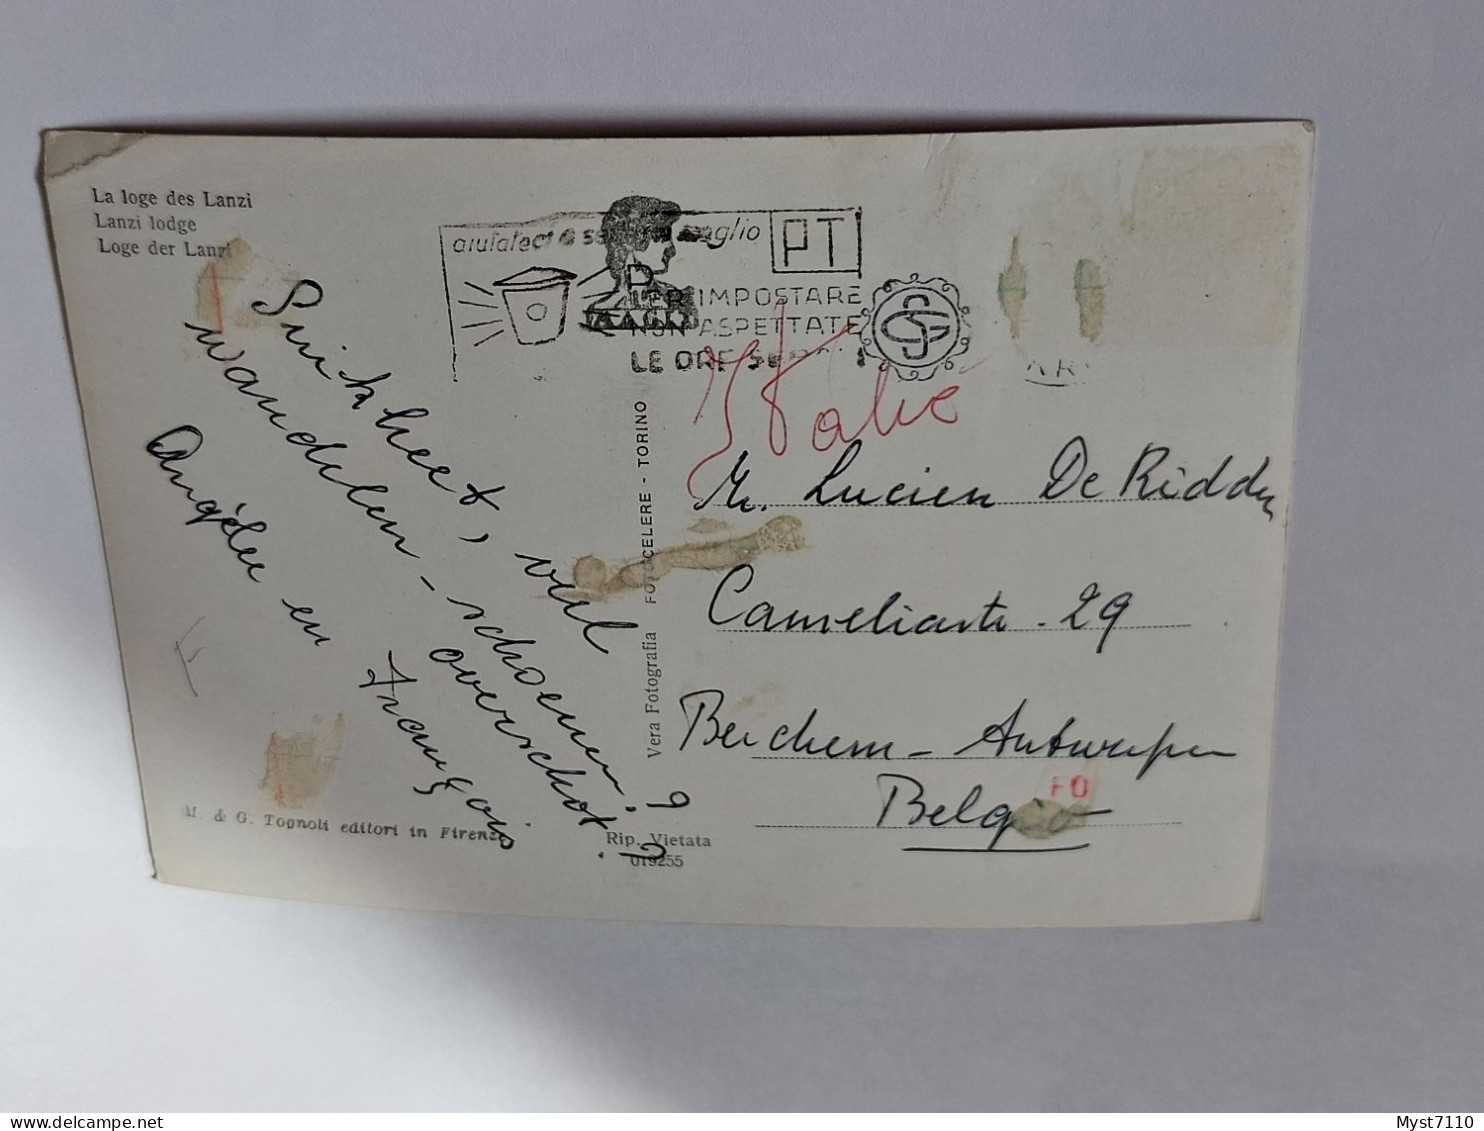 La loge des Lanzi
Lanzi lodge
Loge der Lanzi
aiutateci a meglio
PT
PER IMPOSTARE
NON ASPETTATE
LE ORE
Italie
heet, veel
wandelen - schoenen?
overschot?
Angèle en François
Vera Fotografia FOTOCELERE - TORINO
Mr. Lucien De Ridder
Cameliastr. 29
Berchem - Antwerpen
België
M. & G. Tognoli editori in Firenze
Rip. Vietata
019255
delcampe.net
Myst7110